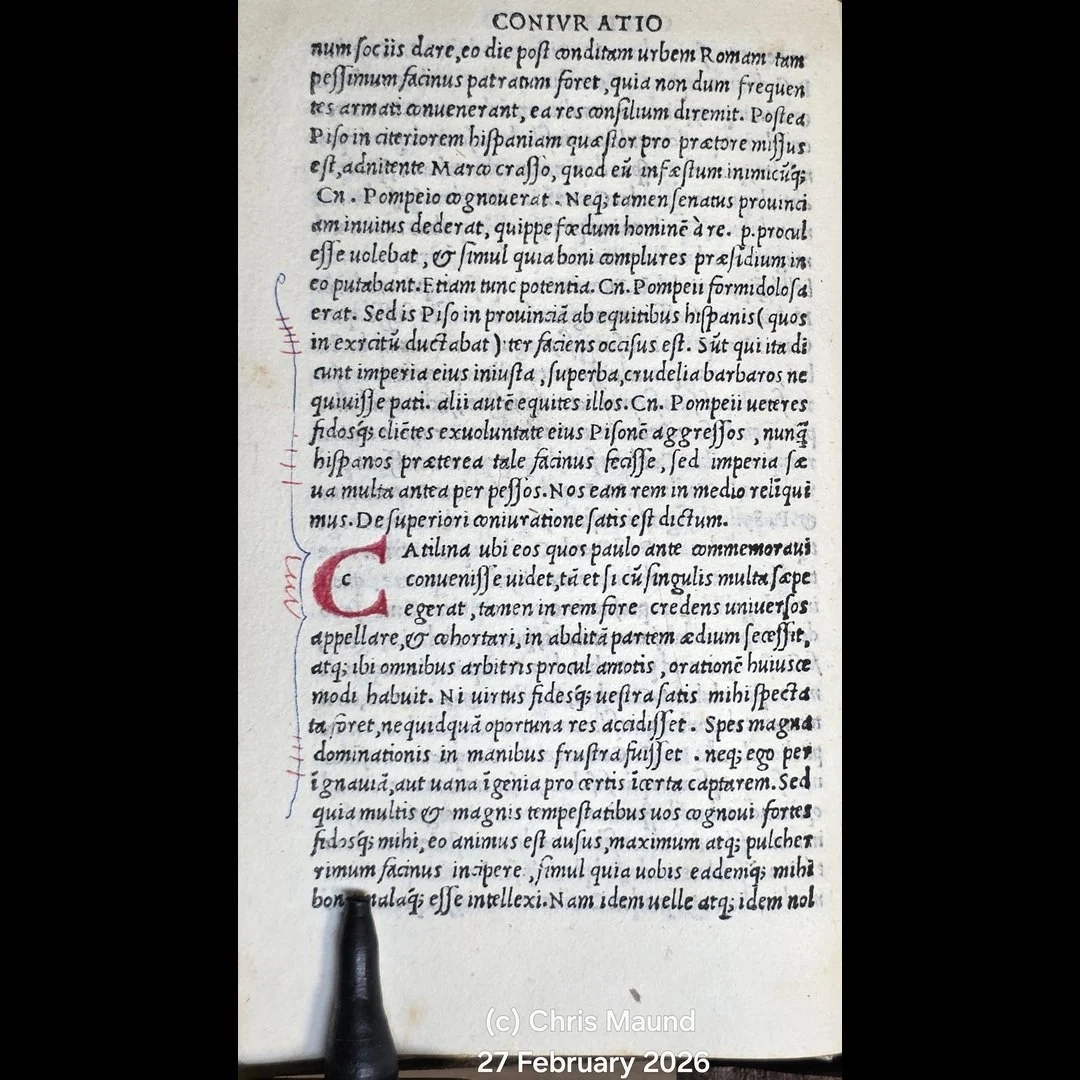 CONIVRATIO
num sociis dare, eo die post conditam urbem Romam tam
pessimum facinus patratum foret, quia non dum frequen
tes armati convenerant, ea res consilium diremit. Postea
Piso in citeriorem hispaniam quæstor pro prætore missus
est, adnitente Marco crasso, quod eū infæstum inimicūq;
Cn. Pompeio cognouerat. Neq; tamen senatus prouinci
am inuitus dederat, quippe fœdum hominē à re. p. procul
esse uolebat, & simul quia boni complures præsidium in
eo putabant. Etiam tunc potentia. Cn. Pompeii formidolosa
erat. Sed is Piso in prouinciā ab equitibus hispanis (quos
in exrcitū ductabat) iter faciens occisus est. Sūt qui ita di
cunt imperia eius iniusta, superba, crudelia barbaros ne
quiuisse pati. alii autē equites illos. Cn. Pompeii ueteres
fidosq́; cliētes exuoluntate eius Pisonē aggressos, nunq̄
hispanos præterea tale facinus fecisse, sed imperia sæ
ua multa antea per pessos. Nos eam rem in medio relīqui
mus. De superiori coniuratione satis est dictum.
C c Atilina ubi eos quos paulo ante commemoraui
conuenisse uidet, tā et si cū singulis multa sæpe
egerat, tamen in rem fore credens uniuersos
appellare, & cohortari, in abditā partem ædium secessit,
atq; ibi omnibus arbitris procul amotis, orationē huiusce
modi habuit. Ni uirtus fidesq́; uestra satis mihi specta
ta foret, nequidquā oportuna res accidisset. Spes magna
dominationis in manibus frustra fuisset. neq; ego per
īgnauiā, aut uana īgenia pro certis īcerta captarem. Sed
quia multis & magnis tempestatibus uos cognoui fortes
fidosq́; mihi, eo animus est ausus, maximum atq; pulcher
rimum facinus incipere, simul quia uobis eademq; mihi
malaq́; esse intellexi. Nam idem uelle atq; idem nol
(c) Chris Maund
27 February 2026